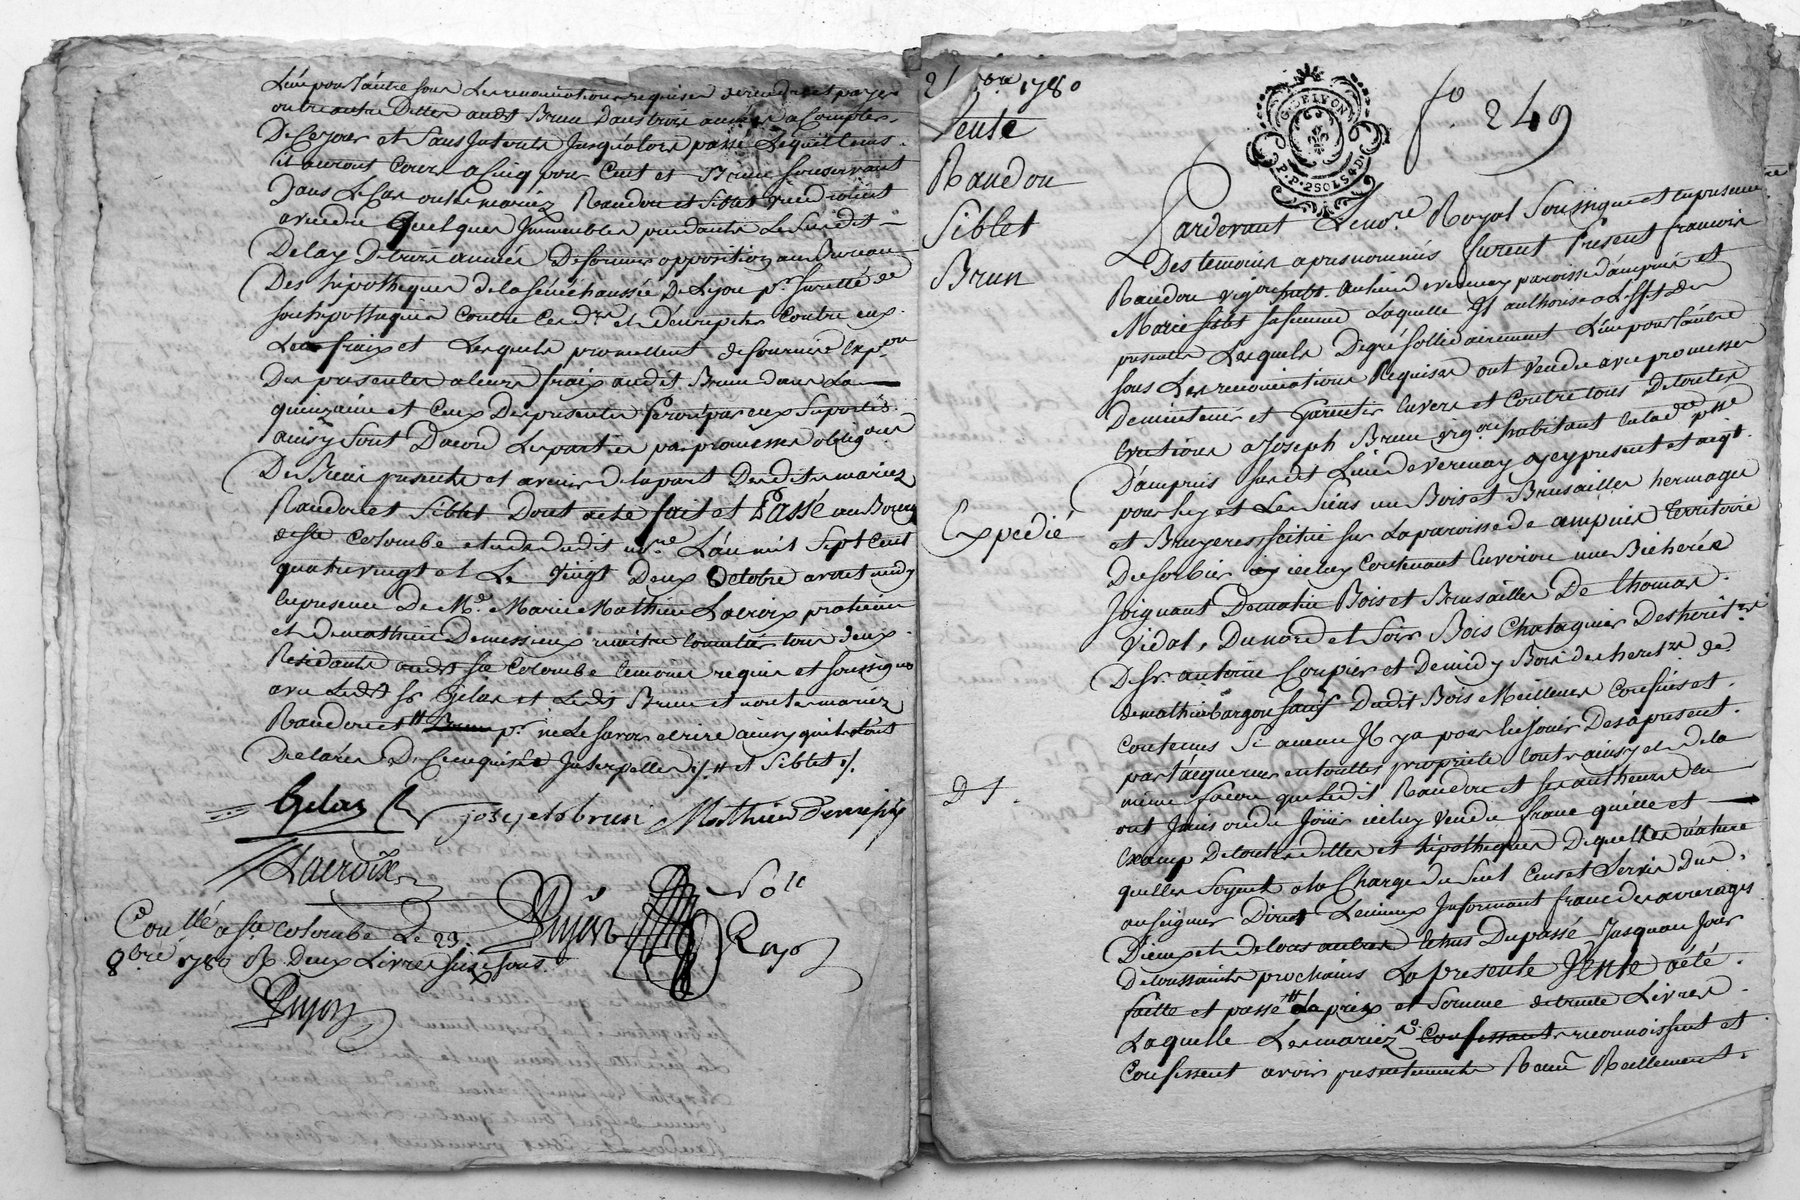 L'un pour l'autre sous Les renonciations requises de rendre et payer
outre autre Dettes audt Brun dans trois années a Compter
De ce jour et Sans Interets Jusqu'alors passé Lequel tems
il auront Cours a Cinq pour Cent et Brun se reservant
Dans Le Cas ou les mariez Raudon et Siblet viendroient
a vendre quelques Immeubles pendant Le Susdit
Delay De trois années De former opposition au Bureau
Des hipotheques de la sénéchaussée De Lyon pr sureté de
son hipotheque Contre Ces drs et d'en repeter Contre eux
Les fraix et Lesquels promettent de fournir Expon
Des presentes a leurs fraix audit Brun dans La
quinzaine et Ceux Des presentes seront par eux Suportés
ainsy Sont D'acord Les parties par promesses obligons
De Biens presents et a venir de la part Desdits mariez
Raudon et Siblet Dont acte fait et Passé au Bourg
de Ste Colombe etude dudit nre L'an mil Sept Cent
quatre vingt et Le Vingt Deux Octobre avant midy
En presence De Me Marie Mathieu Lacroix praticien
et de mathieu Demessieux maitre tous deux
Residants audt Ste Colombe temoins requis et soussignés
avec Ledt sr Gelas et Ledt Brun et non les mariez
Raudon et # pr ne Le savoir ecrire ainsy qu'ils l'ont
Declaré De Ce enquis et Interpellés ./. # et Siblet ./.
Gelas josept brun Mathieu
Lacroix
Dujon
Solt
Rayé
Conllé a Ste Colombe Le 23
8bre 1780 R. Deux Livres six sous
Dujon
2 8bre 1780
Vente
Raudon
Siblet
Brun
Expedié
G. DE LYON
P. P. 2 SOLS 4 D.
fo 249
Pardevant Le nore Royal Soussigné et en presence
Des temoins apres nommés furent Present francois
Raudon vigon habt au lieu de verenay paroisse d'ampuis et
Marie Siblet sa femme Laquelle Il authorise a L'effet des
presentes Lesquels De gré sollidairement L'un pour L'autre
sous Les renonciations Requises ont Vendu avec promesses
De maintenir et Garentir Envers et Contre tous De toutes
Evictions a Joseph Brun vigon habitant en lad. psse
D'ampuis sudit Lieu de verenay a ce present et acept.
pour luy et Les Siens un Bois et Brusailles hermages
et Bruyeres scitué sur La paroisse de ampuis Territoire
Du Sorbier icelluy Contenant Environ une Bicherée
Joignant De matin Bois et Brusailles De thomas
Vidal, Du nord et Soir Bois Chatagnier Des heritrs
De Sr. antoine Coupier et De midy Bois des herers de
de mathieu bargon sauf Dudit Bois Meilleurs Confins et
Contenus Si aucun Il y a pour En Jouir Des apresent
par L'acquereur en toutte propriete tout ainsy et de la
même façon que Ledit Raudon et ses autheurs En
ont Joui ou dû Jouir icelluy Vendu franc quitte et
Exemp De toutes dettes et hipotheques De quelles nature
quelles Soyent a la Charge du Seul Cens et Servis dus
au Seigneur Direct Lequel franc des arrerages
D'iceux et de tous autres Echus Du passé Jusqu'au Jour
De toussaints prochains La presente Vente a été
faitte et passée # Le prix et Somme de trente Livres
Laquelle Les mariez reconnoissent et
Confessent avoir presentement Recu Reellement